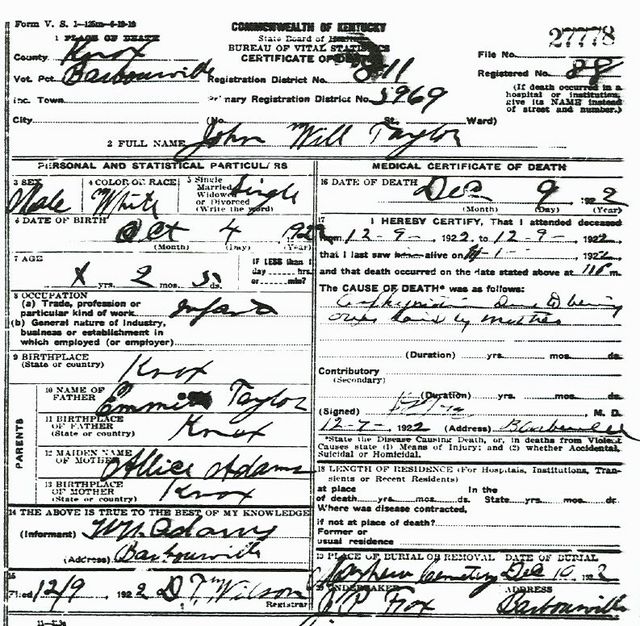 Form V. S. 1-125m-6-19-19
COMMONWEALTH OF KENTUCKY
State Board of Health
BUREAU OF VITAL STATISTICS
CERTIFICATE OF DEATH
27778
File No.
Registered No. 88
(If death occurred in a hospital or institution, give its NAME instead of street and number.)
1 PLACE OF DEATH
County Knox
Vot. Pct. Barbourville
Registration District No. 811
Inc. Town
Primary Registration District No. 5969
City (No. St. Ward)
2 FULL NAME John Will Taylor
PERSONAL AND STATISTICAL PARTICULARS
3 SEX Male
4 COLOR OR RACE White
5 Single Married Widowed or Divorced (Write the word) Single
6 DATE OF BIRTH Oct 4 1922
(Month) (Day) (Year)
7 AGE
X yrs. 2 mos. 5 ds.
IF LESS than 1 day hrs. or min?
8 OCCUPATION
(a) Trade, profession or particular kind of work Infant
(b) General nature of industry, business or establishment in which employed (or employer)
9 BIRTHPLACE (State or country) Knox
PARENTS
10 NAME OF FATHER Taylor
11 BIRTHPLACE OF FATHER (State or country) Knox
12 MAIDEN NAME OF MOTHER Allice Adams
13 BIRTHPLACE OF MOTHER (State or country) Knox
14 THE ABOVE IS TRUE TO THE BEST OF MY KNOWLEDGE
(Informant) Wm Adams
(Address) Barbourville
15
Filed 12/9 1922 Wilson
Registrar
MEDICAL CERTIFICATE OF DEATH
16 DATE OF DEATH Dec 9 1922
(Month) (Day) (Year)
17 I HEREBY CERTIFY, That I attended deceased
from 12-9- 1922, to 12-9- 1922
that I last saw alive on 1922
and that death occurred on the date stated above at m.
The CAUSE OF DEATH* was as follows:
by mother
(Duration) yrs. mos. ds.
Contributory
(Secondary)
(Duration) yrs. mos. ds.
(Signed) M. D.
12-7- 1922 (Address) Barbourville
*State the Disease Causing Death, or, in deaths from Violent Causes state (1) Means of Injury; and (2) whether Accidental, Suicidal or Homicidal.
18 LENGTH OF RESIDENCE (For Hospitals, Institutions, Transients or Recent Residents)
at place of death yrs. mos. ds. In the State yrs. mos. ds.
Where was disease contracted,
if not at place of death?
Former or
usual residence
19 PLACE OF BURIAL OR REMOVAL DATE OF BURIAL
Cemetery Dec 10 1922
20 UNDERTAKER ADDRESS
Barbourville